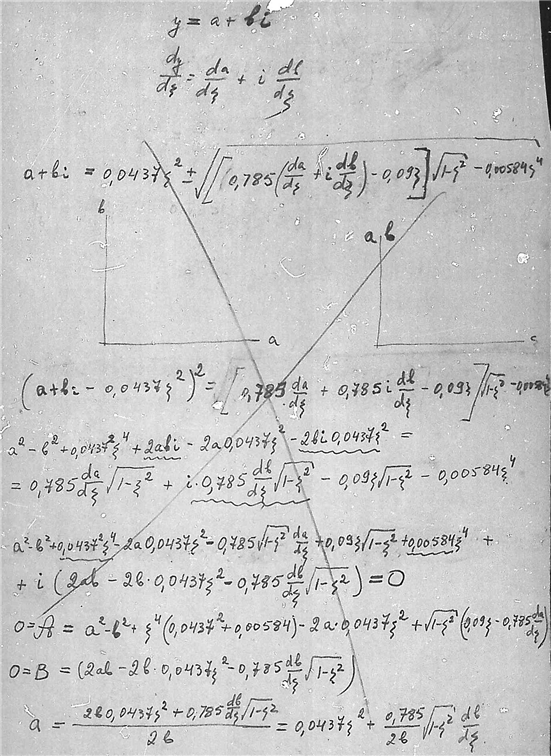 y = a + bi
dy/dξ = da/dξ + i db/dξ
a+bi = 0,0437ξ² ± √([0,785(da/dξ + i db/dξ) - 0,09ξ]√(1-ξ²) - 0,00584ξ⁴)
b a
a b c
(a+bi - 0,0437ξ²)² = [0,785 da/dξ + 0,785i db/dξ - 0,09ξ]√(1-ξ²) - 0,00584ξ⁴
a² - b² + 0,0437²ξ⁴ + 2abi - 2a0,0437ξ² - 2bi0,0437ξ² =
= 0,785 da/dξ √(1-ξ²) + i·0,785 db/dξ √(1-ξ²) - 0,09ξ√(1-ξ²) - 0,00584ξ⁴
a²-b²+0,0437²ξ⁴-2a0,0437ξ²-0,785√(1-ξ²) da/dξ + 0,09ξ√(1-ξ²) + 0,00584ξ⁴ +
+ i (2ab - 2b·0,0437ξ² - 0,785 db/dξ √(1-ξ²)) = 0
0=A = a²-b²+ξ⁴(0,0437²+0,00584) - 2a·0,0437ξ² + √(1-ξ²)(0,09ξ-0,785 da/dξ)
0=B = (2ab - 2b·0,0437ξ² - 0,785 db/dξ √(1-ξ²))
a = (2b0,0437ξ² + 0,785 db/dξ √(1-ξ²))/2b = 0,0437ξ² + 0,785/2b √(1-ξ²) db/dξ